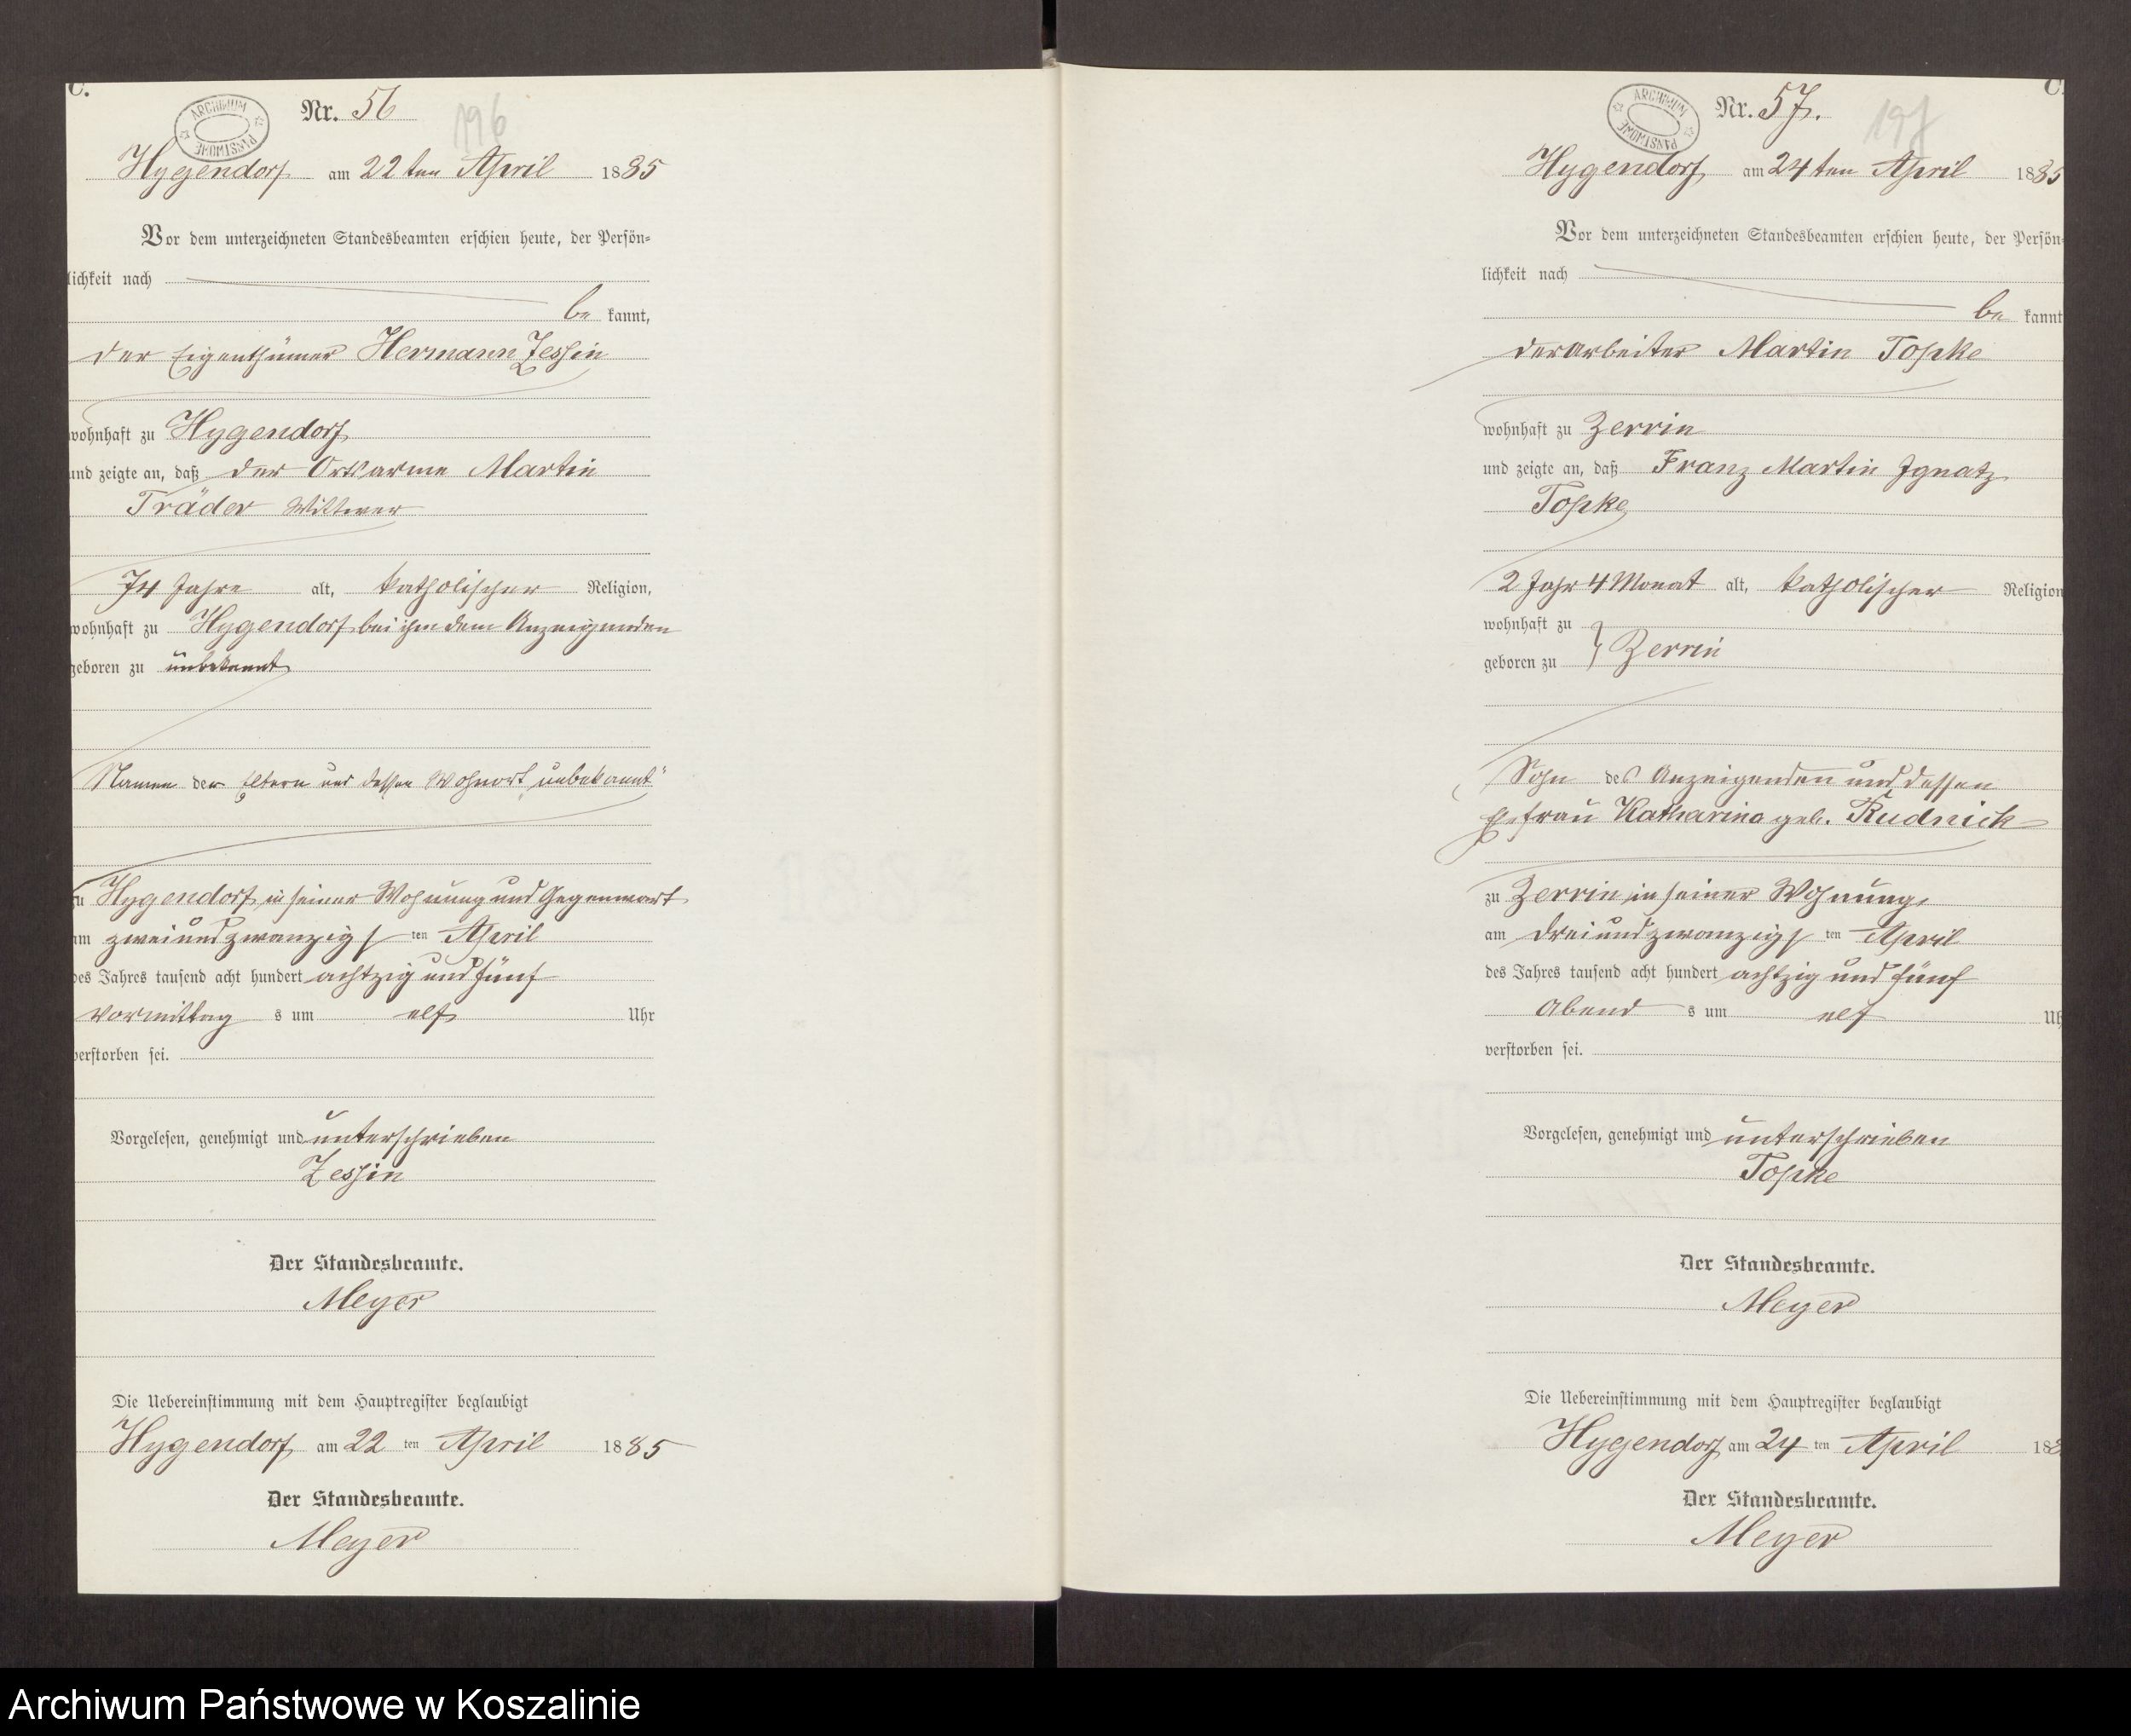 C.
ARCHIWUM PAŃSTWOWE
Nr. 56
196
Hygendorf am 22ten April 1885
Vor dem unterzeichneten Standesbeamten erschien heute, der Persön-
lichkeit nach
be kannt,
der Eigenthümer Hermann Zessin
wohnhaft zu Hygendorf
und zeigte an, daß der Ortsarme Martin
Träder Wittwer
74 Jahre alt, katholischer Religion,
wohnhaft zu Hygendorf bei ihm dem Anzeigenden
geboren zu unbekannt
Namen der Eltern und dessen Wohnort unbekannt
zu Hygendorf, in seiner Wohnung und Gegenwart
am zweiundzwanzigs ten April
des Jahres tausend acht hundert achtzig und fünf
Vormittag s um elf Uhr
verstorben sei.
Vorgelesen, genehmigt und unterschrieben
Zessin
Der Standesbeamte.
Meyer
Die Uebereinstimmung mit dem Hauptregister beglaubigt
Hygendorf am 22 ten April 1885
Der Standesbeamte.
Meyer
C.
ARCHIWUM PAŃSTWOWE
Nr. 57.
197
Hygendorf am 24ten April 1885
Vor dem unterzeichneten Standesbeamten erschien heute, der Persön-
lichkeit nach
be kannt
der Arbeiter Martin Topke
wohnhaft zu Zerrin
und zeigte an, daß Franz Martin Ignatz
Topke
2 Jahr 4 Monat alt, katholischer Religion
wohnhaft zu
geboren zu } Zerrin
Sohn des Anzeigenden und dessen
Ehefrau Katharina geb. Rudnick
zu Zerrin, in seiner Wohnung
am dreiundzwanzigs ten April
des Jahres tausend acht hundert achtzig und fünf
Abend s um elf Uh
verstorben sei.
Vorgelesen, genehmigt und unterschrieben
Topke
Der Standesbeamte.
Meyer
Die Uebereinstimmung mit dem Hauptregister beglaubigt
Hygendorf am 24 ten April 188
Der Standesbeamte.
Meyer
Archiwum Państwowe w Koszalinie